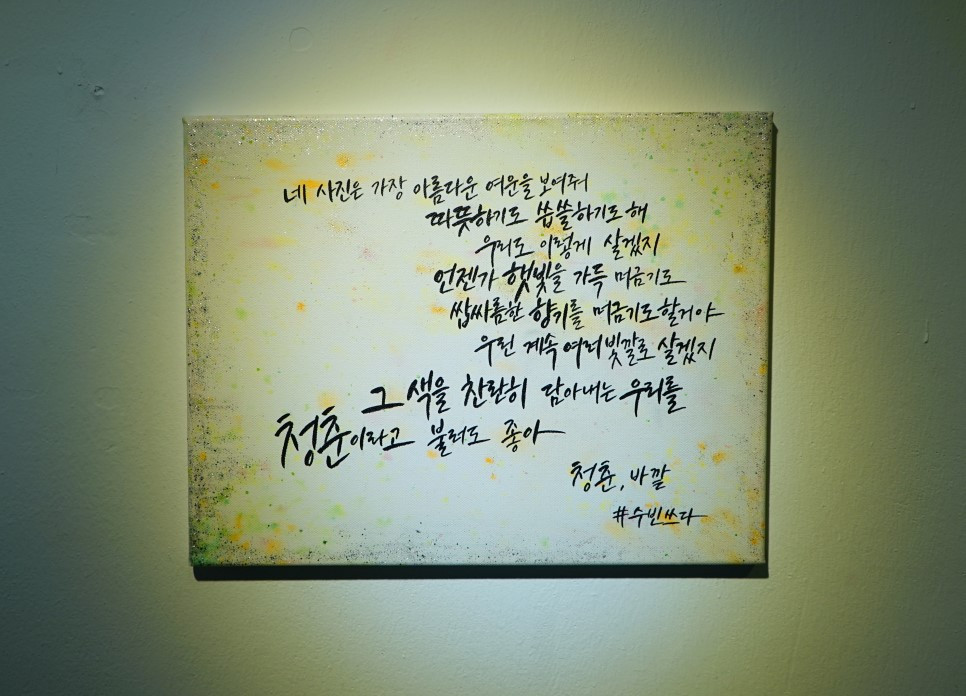 네 사진은 가장 아름다운 여운을 보여줘
따뜻하기도 씁쓸하기도 해
우리도 이렇게 살겠지
언젠가 햇빛을 가득 머금기도
쌉싸름한 향기를 머금기도 할거야
우린 계속 여러 빛깔로 살겠지
그 색을 찬란히 담아내는 우리를
청춘이라고 불러도 좋아
청춘, 바깥
#수빈쓰다